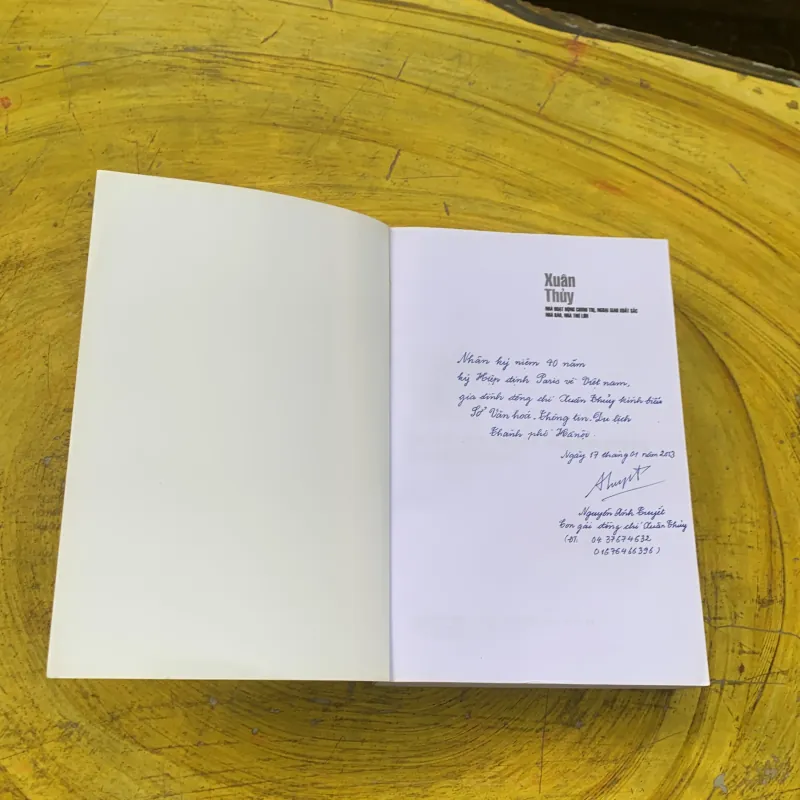 Xuân
Thủy
NHÀ HOẠT ĐỘNG CHÍNH TRỊ, NGOẠI GIAO XUẤT SẮC
NHÀ BÁO, NHÀ THƠ LỚN
Nhân kỷ niệm 40 năm
ký Hiệp định Paris về Việt nam,
gia đình đồng chí Xuân Thủy kính biếu
Sở Văn hoá - Thông tin - Du lịch
Thành phố Hà nội.
Ngày 17 tháng 01 năm 2013
Nguyễn Ánh Tuyết
Con gái đồng chí Xuân Thủy
(ĐT. 04 37674632
01676466396)